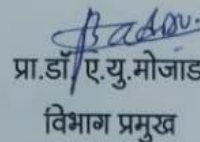 प्रा.डॉ. ए.यु.मोजाड
विभाग प्रमुख